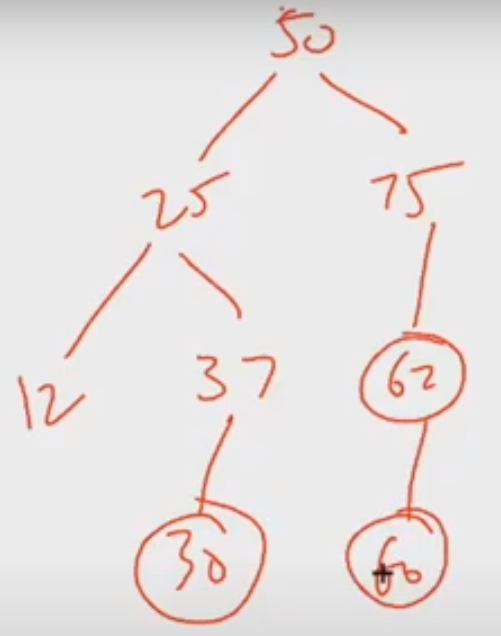 50
25 75
12 37 62
30 60